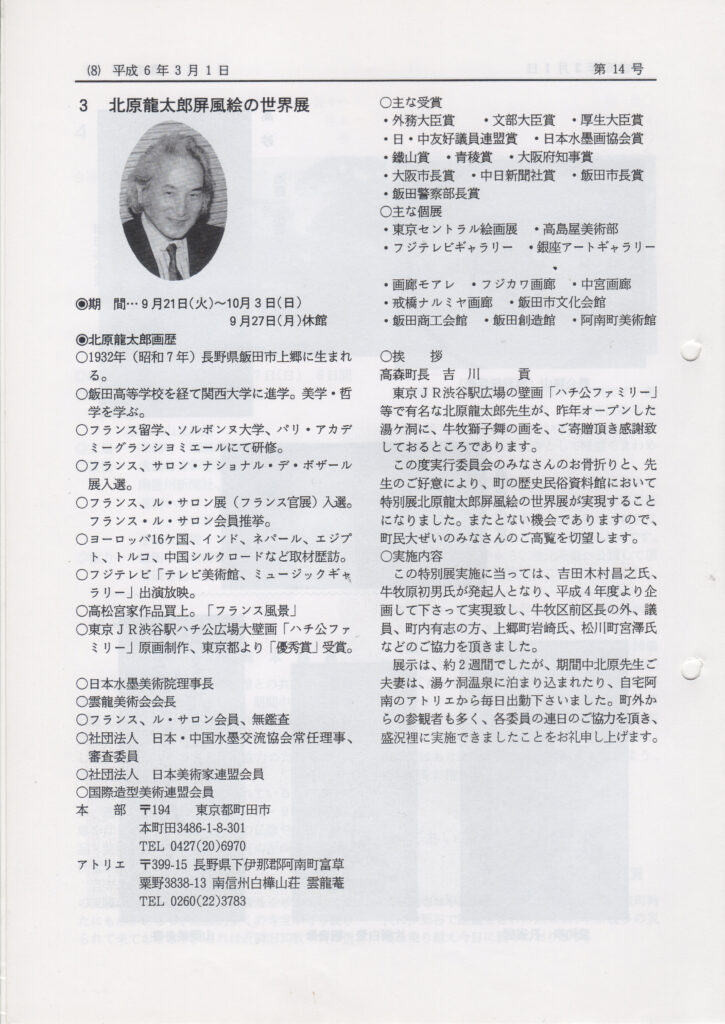 (8) 平成6年3月1日
第14号
3 北原龍太郎屏風絵の世界展
◉期　間…9月21日(火)～10月3日(日)
9月27日(月)休館
◉北原龍太郎画歴
○1932年（昭和7年）長野県飯田市上郷に生まれ
る。
○飯田高等学校を経て関西大学に進学。美学・哲
学を学ぶ。
○フランス留学、ソルボンヌ大学、パリ・アカデ
ミーグランシヨミエールにて研修。
○フランス、サロン・ナショナル・デ・ボザール
展入選。
○フランス、ル・サロン展（フランス官展）入選。
フランス・ル・サロン会員推挙。
○ヨーロッパ16ケ国、インド、ネパール、エジプ
ト、トルコ、中国シルクロードなど取材歴訪。
○フジテレビ「テレビ美術館、ミュージックギャ
ラリー」出演放映。
○高松宮家作品買上。「フランス風景」
○東京JR渋谷駅ハチ公広場大壁画「ハチ公ファ
ミリー」原画制作、東京都より「優秀賞」受賞。
○日本水墨美術院理事長
○雲龍美術会会長
○フランス、ル・サロン会員、無鑑査
○社団法人　日本・中国水墨交流協会常任理事、
審査委員
○社団法人　日本美術家連盟会員
○国際造型美術連盟会員
本　部　〒194　東京都町田市
本町田3486-1-8-301
TEL 0427(20)6970
アトリエ　〒399-15 長野県下伊那郡阿南町富草
粟野3838-13 南信州白樺山荘 雲龍菴
TEL 0260(22)3783
○主な受賞
・外務大臣賞　・文部大臣賞　・厚生大臣賞
・日・中友好議員連盟賞　・日本水墨画協会賞
・鐵山賞　・青稜賞　・大阪府知事賞
・大阪市長賞　・中日新聞社賞　・飯田市長賞
・飯田警察部長賞
○主な個展
・東京セントラル絵画展　・高島屋美術部
・フジテレビギャラリー　・銀座アートギャラリー
・画廊モアレ　・フジカワ画廊　・中宮画廊
・戒橋ナルミヤ画廊　・飯田市文化会館
・飯田商工会館　・飯田創造館　・阿南町美術館
○挨　拶
高森町長　吉　川　　貢
東京JR渋谷駅広場の壁画「ハチ公ファミリー」
等で有名な北原龍太郎先生が、昨年オープンした
湯ケ洞に、牛牧獅子舞の画を、ご寄贈頂き感謝致
しておるところであります。
この度実行委員会のみなさんのお骨折りと、先
生のご好意により、町の歴史民俗資料館において
特別展北原龍太郎屏風絵の世界展が実現すること
になりました。またとない機会でありますので、
町民大ぜいのみなさんのご高覧を切望します。
○実施内容
この特別展実施に当っては、吉田木村昌之氏、
牛牧原初男氏が発起人となり、平成4年度より企
画して下さって実現致し、牛牧区前区長の外、議
員、町内有志の方、上郷町岩崎氏、松川町宮澤氏
などのご協力を頂きました。
展示は、約2週間でしたが、期間中北原先生ご
夫妻は、湯ケ洞温泉に泊まり込まれたり、自宅阿
南のアトリエから毎日出勤下さいました。町外か
らの参観者も多く、各委員の連日のご協力を頂き、
盛況裡に実施できましたことをお礼申し上げます。